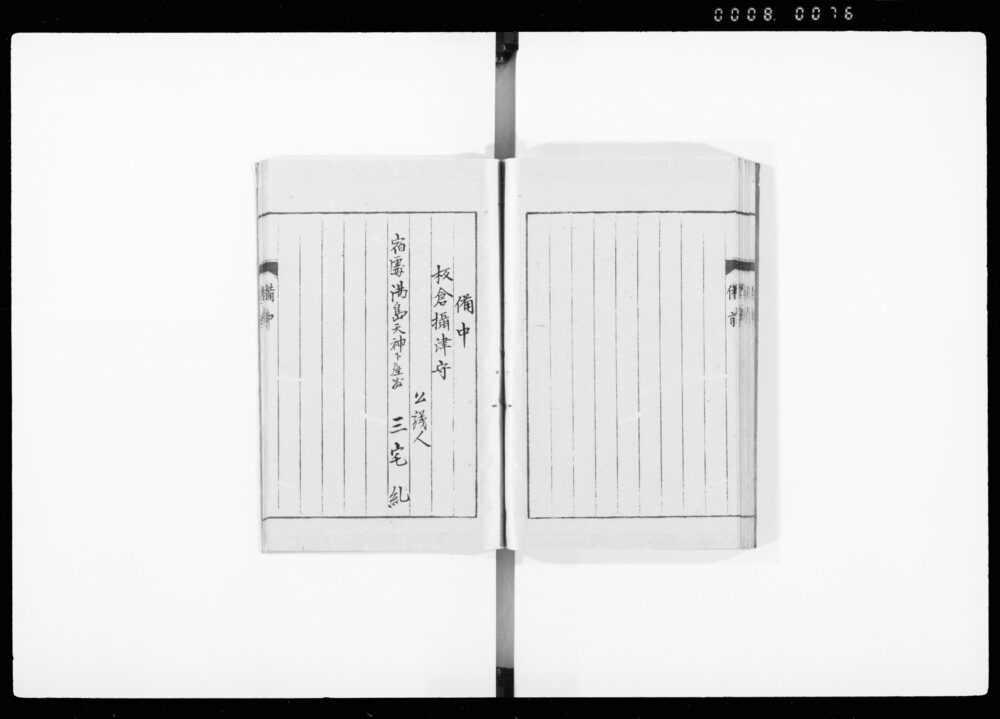 0008. 0076
備前
備中
板倉攝津守
公議人
宿寓湯島天神下屋敷 三宅糺
備中